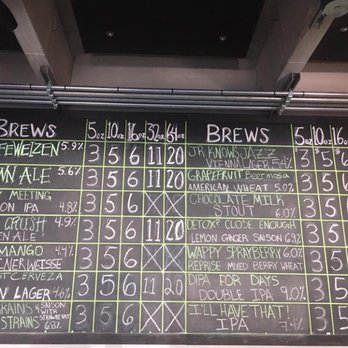 BREWS 5oz 10oz 16oz 32oz 64oz
5.9%
3 5 6 11 20
ALE 5.6%
3 5 6 11 20
MEETING
IPA 4.8%
3 5 6 X X
CRUSH 4.9%
ALE
3 5 6 11 20
MANGO 4.4%
3 5 6 X X
CERVEZA
LAGER 4.6%
3 5 6 11 20
GRAINS SAISON WITH
STRAINS 6.8%
3 5 6 X X
BREWS 5oz 10oz 16
JR KNOWS JAZZ
VIENNA LAGER 5.4%
3 5 6
GRAPEFRUIT bermosa
AMERICAN WHEAT 5.0%
3 5 6
CHOCOLATE MILK
STOUT 6.0%
3 5 6
DETOX? CLOSE ENOUGH
LEMON GINGER SAISON 6.9%
3 5 6
WAPPY SPRAYBERRY 6.0%
REPRISE MIXED BERRY WHEAT
3 5 6
DIPA FOR DAYS
DOUBLE IPA 9.0%
3 5 6
I'LL HAVE THAT!
IPA 7.4%
3 5 6